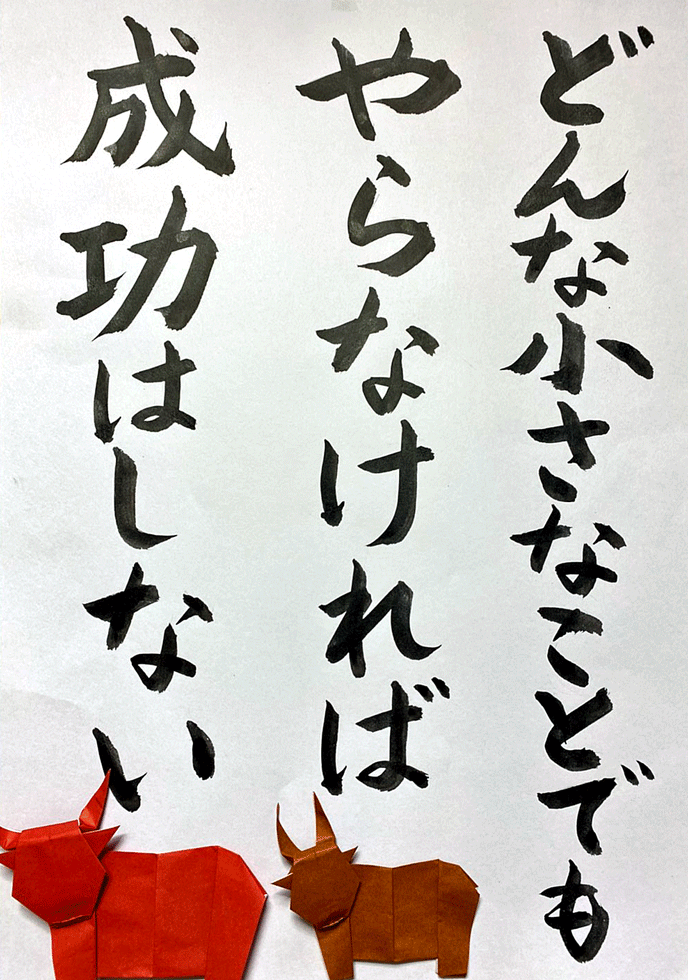 どんな小さなことでも
やらなければ
成功はしない